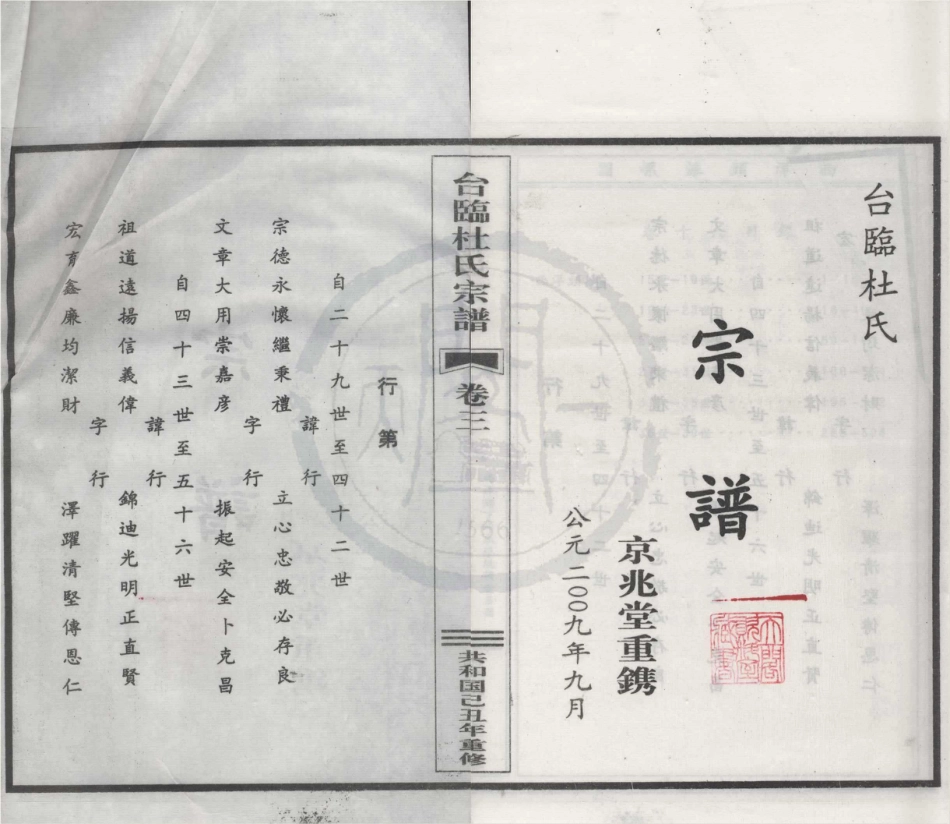 台臨杜氏
宗譜
京兆堂重鐫
公元二00九年九月
台臨杜氏宗譜
卷三
共和国己丑年重修
行第
自二十九世至四十二世
諱行
宗德永懷繼秉禮 立心忠敬必存良
字行
文章大用崇嘉彦 振起安全卜克昌
自四十三世至五十六世
諱行
祖道遠揚信義偉 錦迪光明正直賢
字行
宏育鑫廉均潔財 澤躍清堅傳恩仁